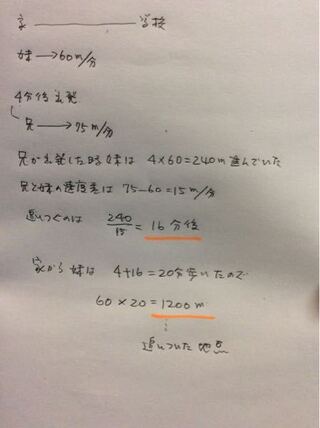 家 ——————— 学校
妹 → 60m/分
4分後出発
兄 → 75m/分
兄が出発した時、妹は 4×60=240m 進んでいた
兄と妹の速度差は 75-60=15m/分
追いつくのは 240/15 = 16分後
家から妹は 4+16=20分歩いたので
60×20=1200m
追いついた地点